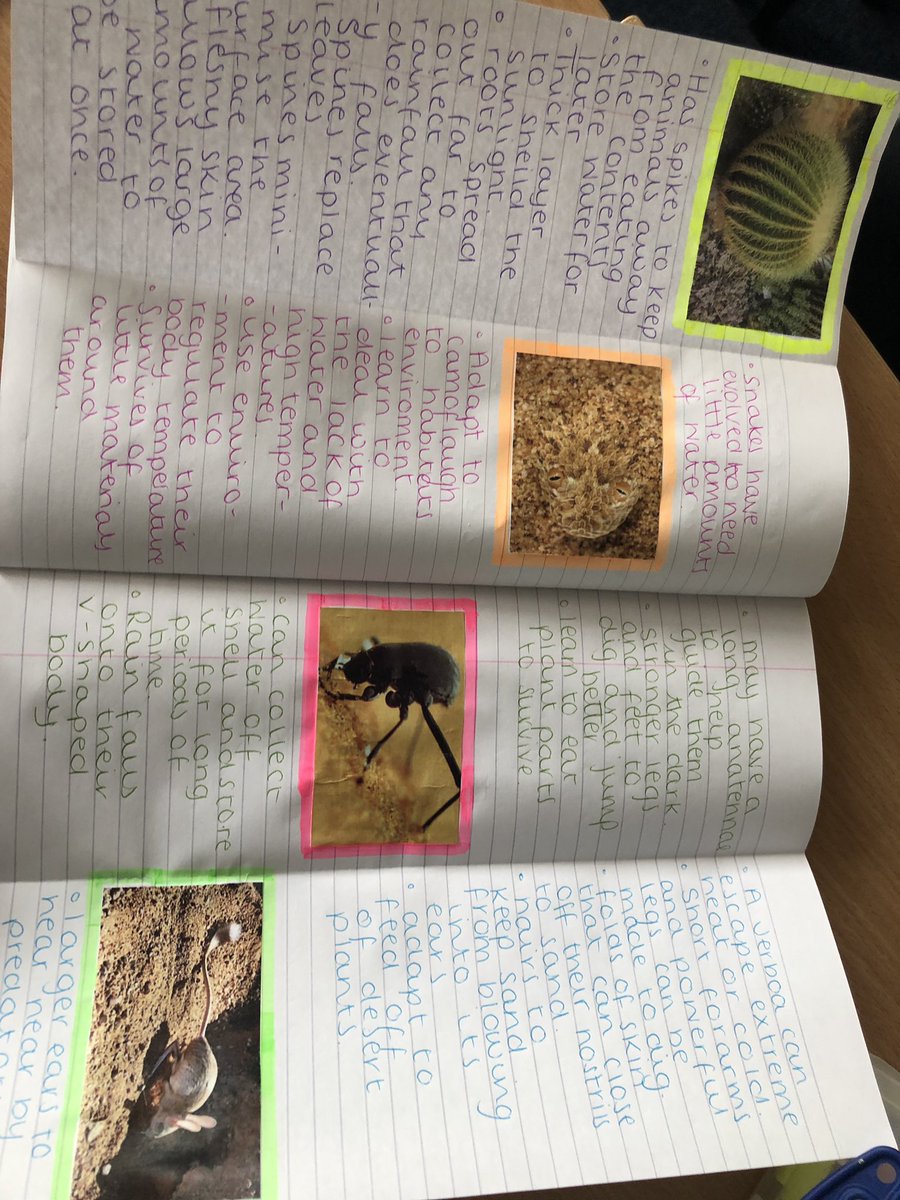 • Has spikes to keep
animals away
from eating
the contents
• Store water for
later
• Thick layer
to sheild the
sunlight.
• roots spread
out far to
collect any
rainfall that
does eventuall
-y falls.
Spines replace
leaves
Spines mini-
mise the
urface area.
fleshy skin
allows large
mounts of
water to
be stored
at once.
• Snakes have
evolved to need
little amounts
of water
• Adapt to
camoflaugh
to habitats
enviroment.
• learn to
deal with
the lack of
water and
high temper-
-atures.
• use enviro-
-ment to
regulate their
body tempeature
• Survives of
little material
around
them.
• may have a
long anatennae
to help
guide them
in the dark.
• stronger legs
and feet to
dig and jump
better
• learn to eat
plant parts
to survive
• can collect
water off
shell and store
it for long
periods of
time
• Rain falls
onto their
v-shaped
body.
• A verboa can
escape extreme
heat or cold.
• Short forarms
and powerful
legs can be
made to dig.
• folds of skin
that can close
off their nostrils
to sand.
• hairs to
keep sand
from blowing
into its
ears
• adapt to
feed off
of desert
plants.
• larger ears to
hear near by
predator